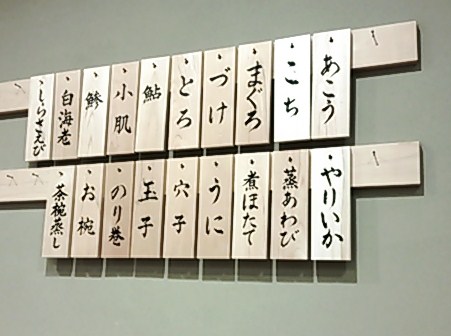 あこう
こち
まぐろ
づけ
とろ
鮎
小肌
鯵
白海老
しらさえび
やりいか
蒸あわび
煮ほたて
うに
穴子
玉子
のり巻
お椀
茶椀蒸し